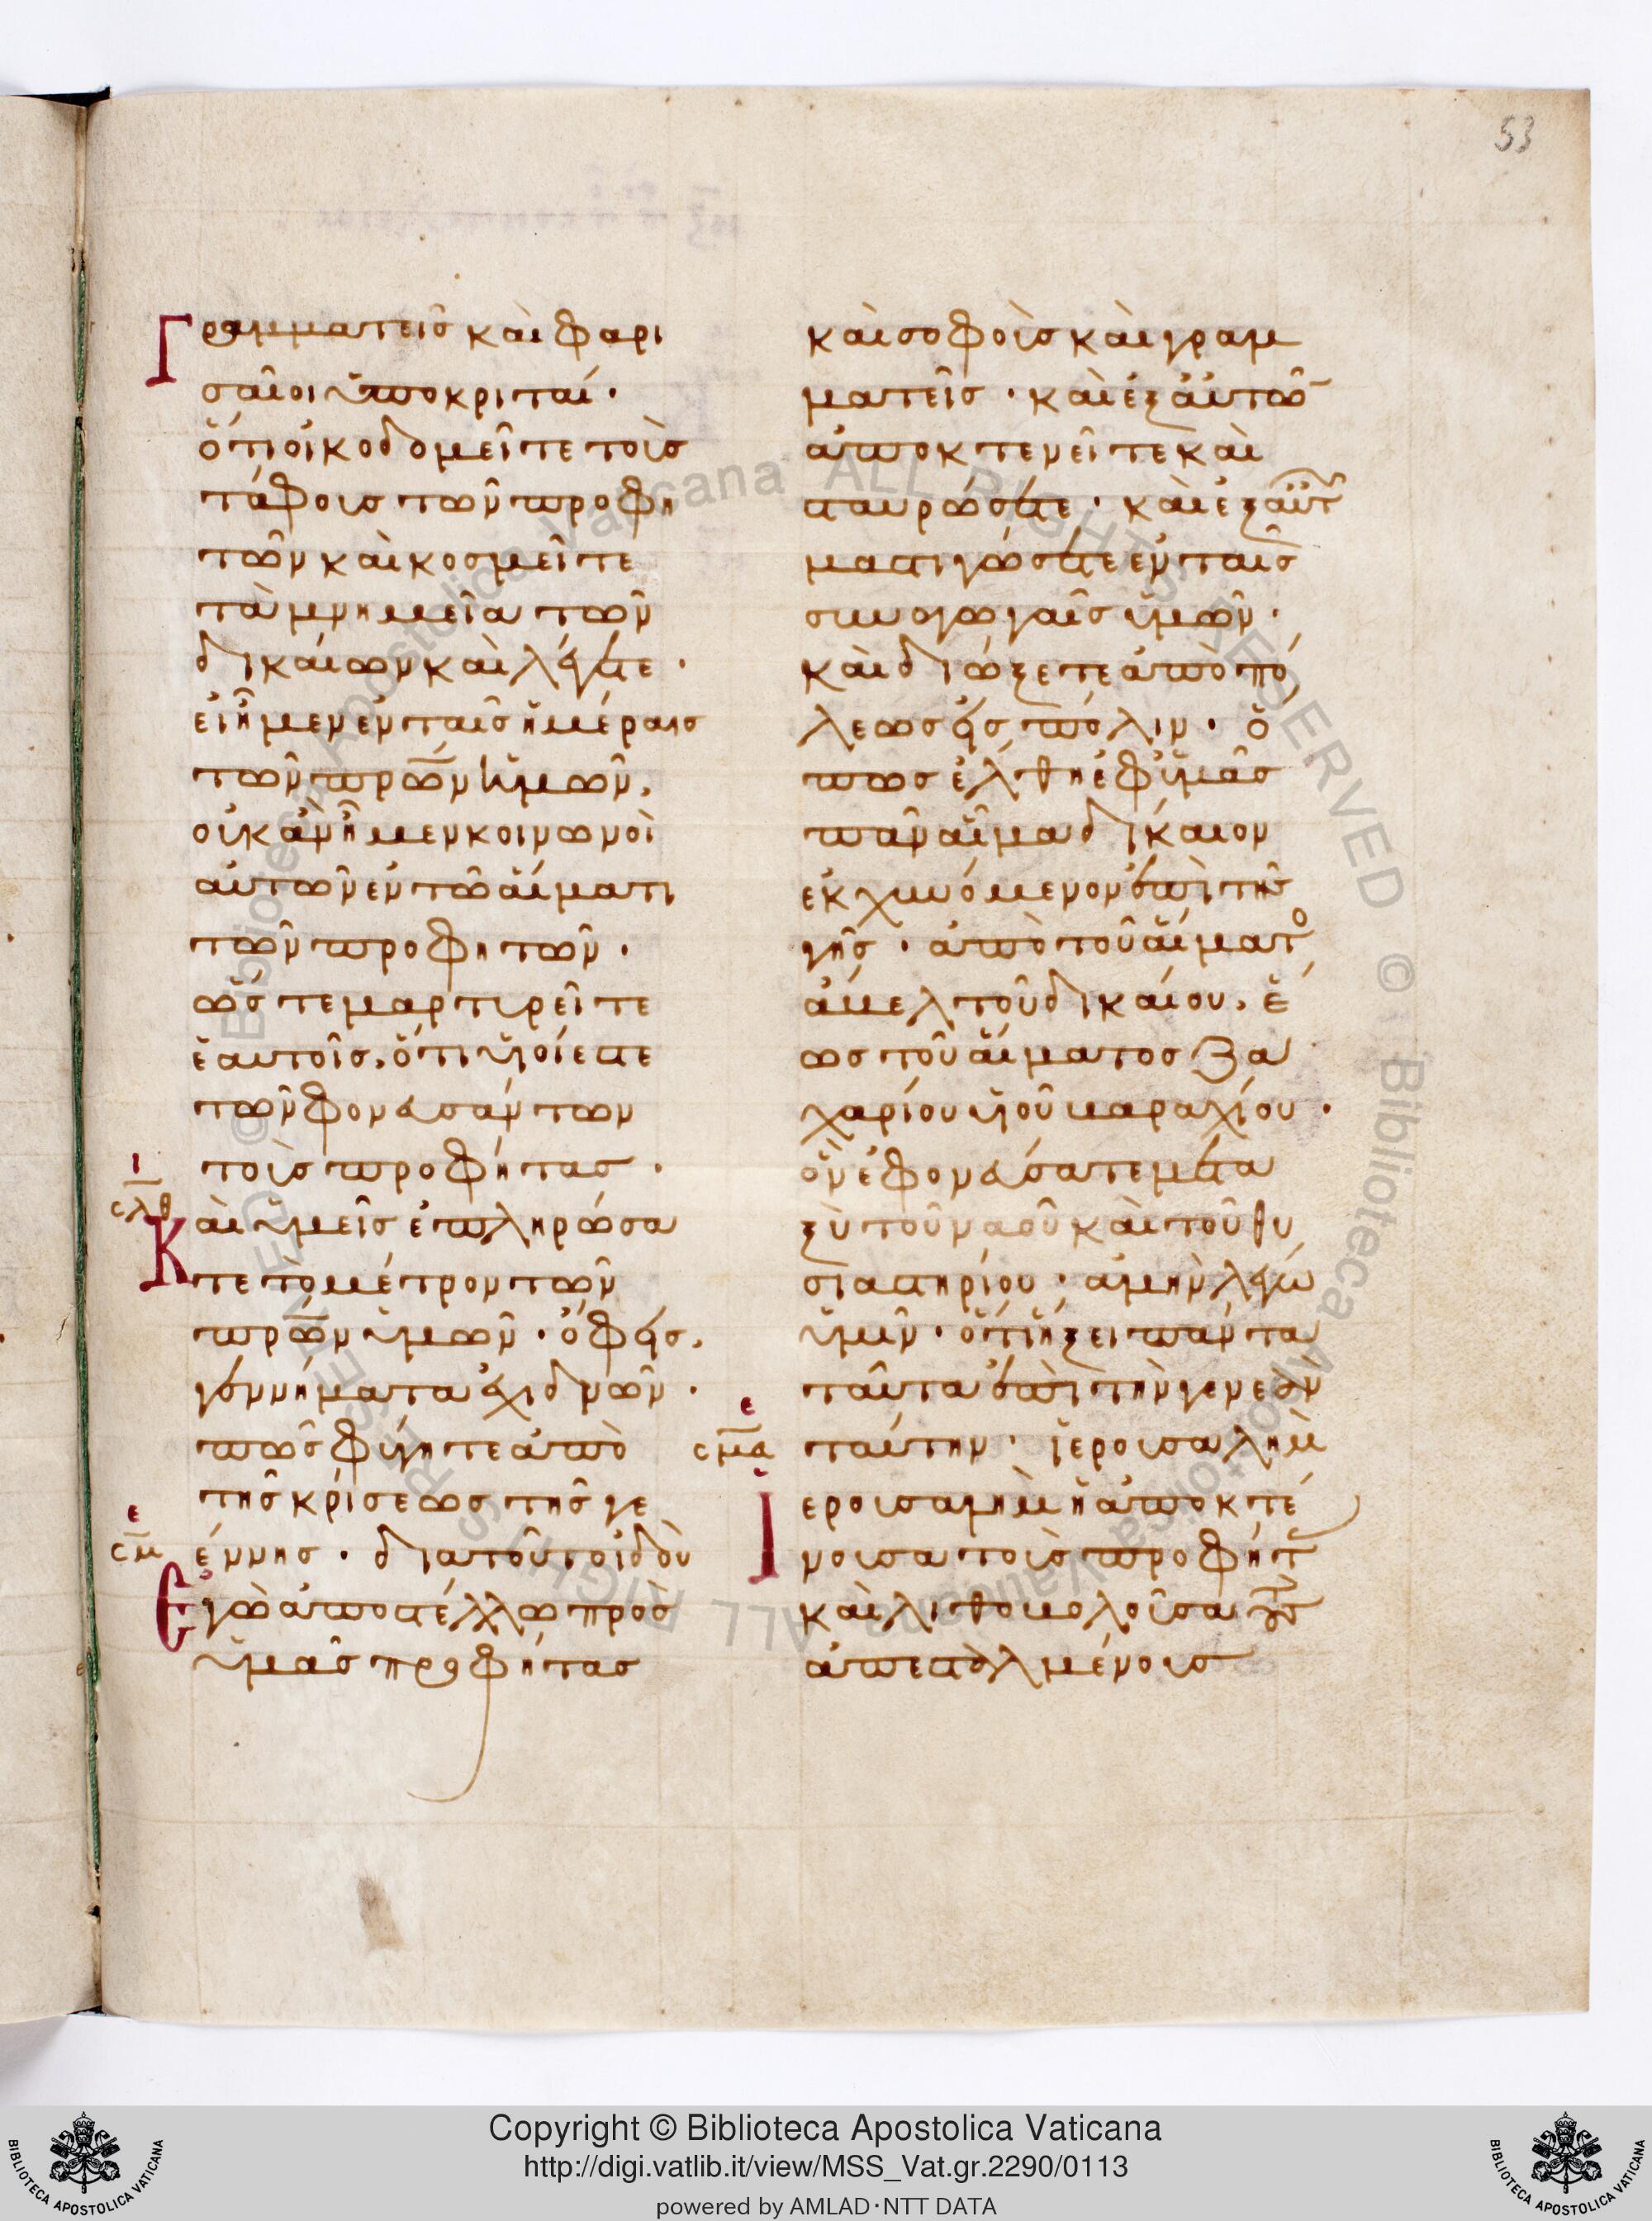 53
Γραμματεῖς καὶ φαρι
σαῖοι ὑποκριταί·
ὅτι οἰκοδομεῖτε τοὺς
τάφους τῶν προφη
τῶν καὶ κοσμεῖτε
τὰ μνημεῖα τῶν
δικαίων καὶ λέγετε·
εἰ ἦμεν ἐν ταῖς ἡμέραις
τῶν πρων ἡμῶν,
οὐκ ἂν ἦμεν κοινωνοὶ
αὐτῶν ἐν τῶ αἵματι
τῶν προφητῶν·
ὥστε μαρτυρεῖτε
ἑαυτοῖς, ὅτι υἱοί ἐστε
τῶν φονευσάντων
τοὺς προφήτας·
ι
σλθ
Καὶ ὑμεῖς ἐπληρώσα
τε τὸ μέτρον τῶν
πρων ὑμῶν· ὄφεις,
γεννήματα ἐχιδνῶν·
πῶς φύγητε ἀπὸ
τῆς κρίσεως τῆς γε
ε
σμ
έννης· διατοῦτο ἰδοὺ
Ἐγὼ ἀποστέλλω πρὸς
ὑμᾶς προφήτας
καὶ σοφοὺς καὶ γραμ
ματεῖς· καὶ ἐξ αὐτῶ
ἀποκτενεῖτε καὶ
σταυρώσετε· καὶ ἐξ αὐτ
μαστιγώσετε ἐν ταῖς
συναγωγαῖς ὑμῶν·
καὶ διώξετε ἀπὸ πό
λεως εἰς πόλιν· ὅ
πως ἔλθη ἐφ ὑμᾶς
πᾶν αἷμα δίκαιον
ἐκχυνόμενον ἐπὶ τῆς
γῆς· ἀπὸ τοῦ αἵματο
ἄβελ τοῦ δικαίου, ἕ
ως τοῦ αἵματος Ζα
χαρίου υἱοῦ βαραχίου·
ὃν ἐφονεύσατε μετα
ξὺ τοῦ ναοῦ καὶ τοῦ θυ
σιαστηρίου· ἀμὴν λέγω
ὑμῖν· ὅτι ἥξει πάντα
ταῦτα ἐπὶ τὴν γενεὰν
ε
σμα
ταύτην· ἱερουσαλὴμ
Ἱερουσαλὴμ ἡ ἀποκτέ
νουσα τοὺς προφήτ
καὶ λιθοβολοῦσα τ
ἀπεσταλμένους
Copyright © Biblioteca Apostolica Vaticana
http://digi.vatlib.it/view/MSS_Vat.gr.2290/0113
powered by AMLAD·NTT DATA
BIBLIOTECA APOSTOLICA VATICANA
BIBLIOTECA APOSTOLICA VATICANA